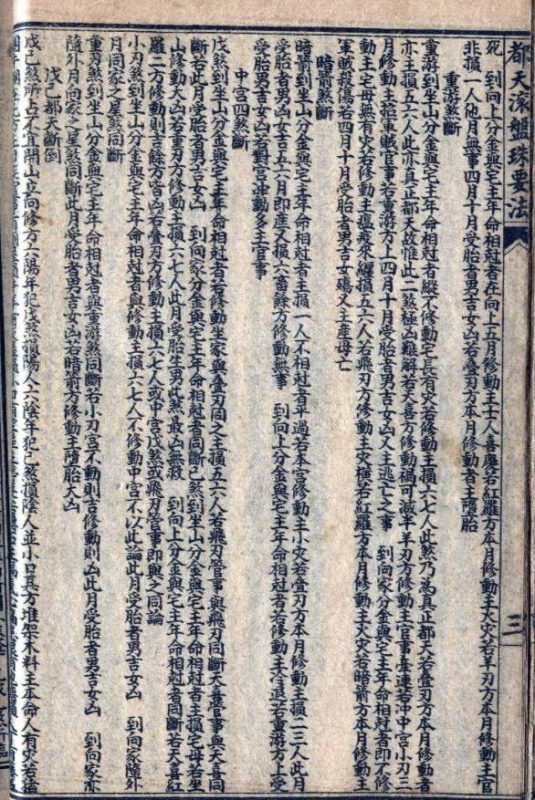 都天滾盤珠要法
三
死　到向上分金與宅主年命相尅者在向上五月修動主士人喜慶若紅羅方本月修動主火灾若羊刃方本月修動主官
非損一人他月無事四月十月受胎者男吉女凶若疊刃方本月修動者主墮胎
重游煞斷
重游到坐山分金與宅主年命相尅者縱不修動宅長有灾若修動主損六七人此煞乃為真正都天若疊刃方本月修動者
亦主損五六人此亦真正都天故惟此二煞極凶難解若天喜方修動禍可減半羊刃方修動主官事臺連若冲中宮小刃三
月修動主招軍賊官事若重游方上四月十月受胎者男吉女凶又主逃亡之事　到向家分金與宅主年命相尅者即不修
動主宅母無有灾若修動主瘟疫來纏損五六人若飛刃方修動主灾橫若紅羅方本月修動主火灾若暗箭方本月修動主
軍賊殺傷若四月十月受胎者男吉女殤又主產母亡
暗箭煞斷
暗箭到坐山分金與宅主年命相尅者主損一人不相尅者平過若本宮修動主小灾若疊刃方本月修動主損二三人此月
受胎者男吉女凶五六月即產又損六畜餘方修動無事　到向上分金與宅主年命相尅者若修動主冷退若重游方上受
受胎男吉女凶若對宮冲動多主官事
中宮四煞斷
戊煞到坐山分金與宅主年命相尅者若修動坐家與疊刃同之主損五六人若飛刃管事與飛刃同斷天喜管事與天喜同
斷若此月受胎者男吉女凶　到向家分金與宅主年命相尅者同斷己煞到坐山分金與宅主年命相尅者主損宅母若坐
山修動大凶若重刃方修動主損六七人此月受胎主男此煞最凶無救　到向上分金與宅主年命相尅者同斷若天喜紅
羅二方修動則吉餘方宮凶若疊刃方修動主損六七人或中宮戊煞或飛刃管事即與之同論
小刃煞到坐山分金與宅主年命相尅者與修動主損六七人不修動中宮不以此論此月受胎者男吉女凶　到向家隨外
月向家之星煞同斷
重刃煞到坐山分金與宅主年命相尅者與重游煞同斷若小刃宮不動則吉修動則凶此月受胎者男吉女凶　到向家亦
隨外月向家之星煞同斷此月受胎者男吉女凶若暗箭方修動主墮胎大凶
戊己都天斷例
戊己煞所占不宜開山立向修方六陽年犯戊煞損陽人六陰年犯己煞損陰人並小口其方堆架木料主本命人有灾若搭